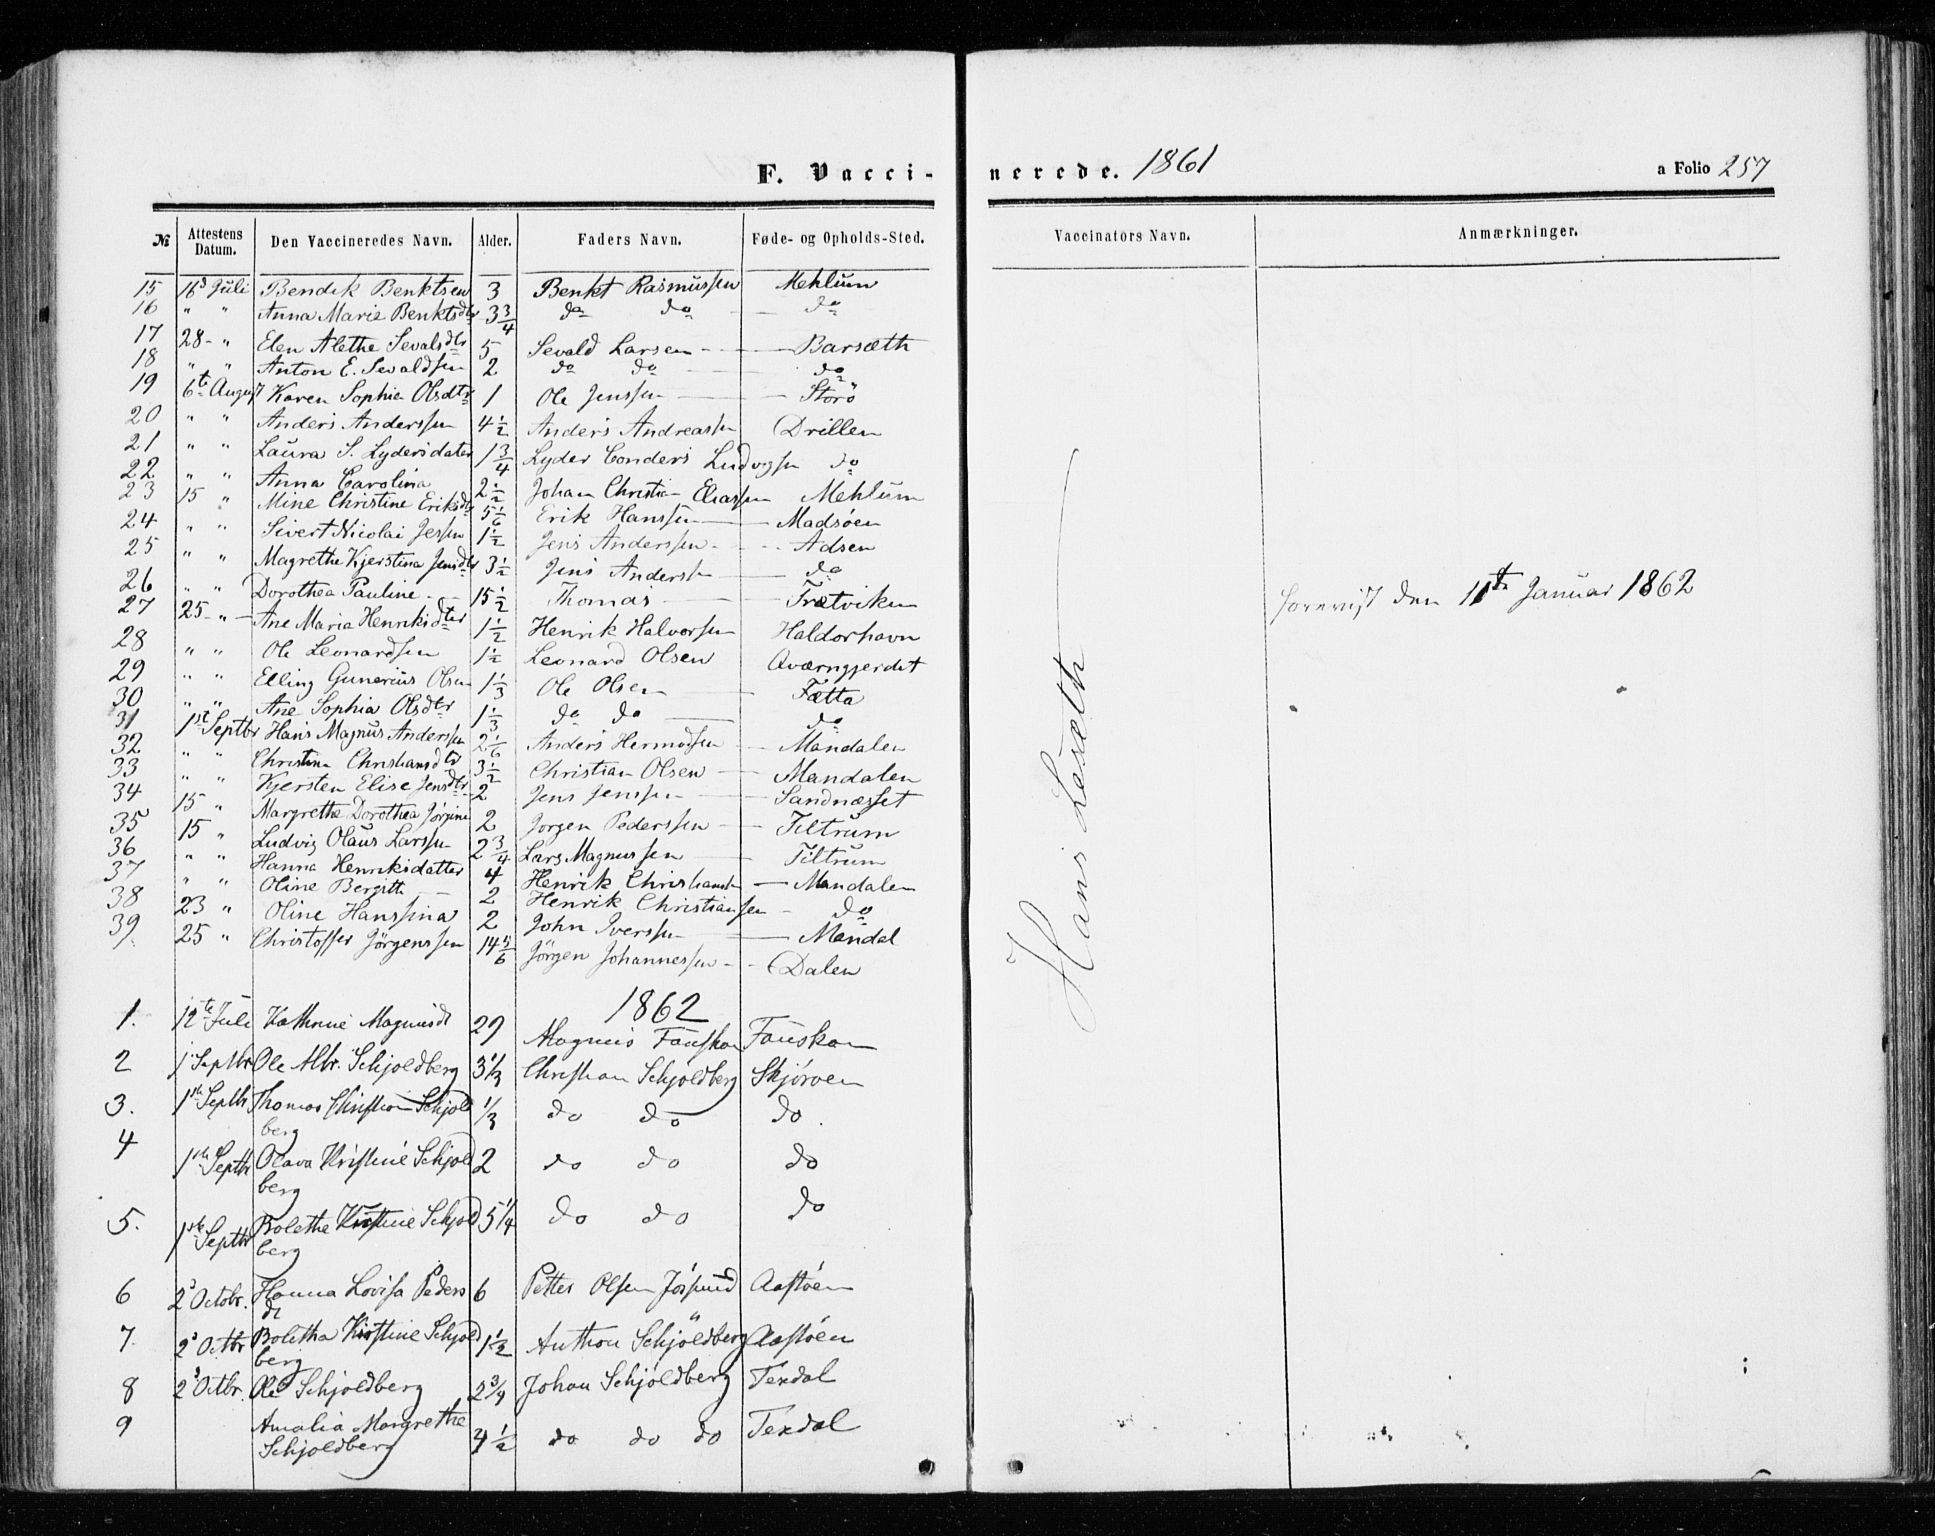 F. Vacci-
nerede. 1861
a Folio 257
№ Attestens Datum. Den Vaccineredes Navn. Alder. Faders Navn. Føde- og Opholds-Sted. Vaccinators Navn. Anmærkninger.
15 16d Juli Bendik Benktsen 3 Benkt Rasmussen Mehlum
16 " " Anna Marie Benktsdtr 3 3/4 do do do
17 28 - " Elen Alethe Sevalsdtr 5 Sevald Larsen - Barsæth
18 " " Anton E. Sevaldsen 2 do do do
19 6te August Karen Sophie Olsdtr 1 Ole Jenssen - Storö
20 " " Anders Anderssen 4 1/2 Anders Andreassen Drillen
21 " " Laura S. Lydersdater 1 3/4 Lyder Conders Ludvigsen do
22 " " Anna Carolina 2 1/2 Johan Christian Eliassen Mehlum
23 15 " Mine Christine Eriksdtr 5 1/6 Erik Hanssen - Madsøen
24 " " Sivert Nicolai Jessen 1 1/2 Jens Anderssen - Adsen
25 " " Magrethe Kjerstina Jensdtr 3 1/2 Jens Anderssen do
26 " " Dorothea Pauline - 15 1/2 Thomas - Frætviken
27 25 - " - Ane Maria Henriksdter 1 1/2 Henrik Halvorsen Haldorhavn
28 " " Ole Leonardsen 1 1/2 Leonard Olsen Aværngjerdet
29 " " Elling Gunerius Olsen 1 1/3 Ole Olsen Fætta
30 " " Ane Sophia Olsdtr 1 1/3 do do do
31 1st Septbr Hans Magnus Anderssen 2 1/6 Anders Hermodsen - Mandalen
32 " " Christina Christiansdtr 3 1/2 Christian Olsen - Mandalen
33 " " Kjersten Elise Jensdtr 2 Jens Jenssen - Sandnæsset
34 15 " Margrethe Dorothea Jørgine 2 Jorgen Pederssen - Tiltrum
35 15 " Ludvig Olaus Larssen 2 3/4 Lars Magnussen - Tiltrum
36 " " Hanna Henriksdatter 4 Henrik Christiansen - Mandalen
37 " " Oline Bergitte - 2 Henrik Christiansen - do
38 23 " Oline Hanssina 2 John Iverssen - Mandal
39. 25 " Christoffer Jörgenssen 14 5/6 Jörgen Johannessen - Dalen
Hans Lesæth
forevist den 11te Januar 1862
1862
1. 12te Juli Kathrine Magnusdt 29 Magnus Fauskan Fauskan
2 1 Septbr Ole Albr. Schjoldberg 3 1/3 Christian Schjoldberg Skjörven
3. 1ste Septbr Thomas Christian Schjold 1/3 do do do.
berg
4 1ste Septbr Olava Kristine Schjold 2 do do do
berg
5. 1ste Septbr Bolethe Kristine Schjold 5 1/4 do do do
berg
6 2d Octobr. Hanna Lovisa Peders 6 Petter Olsen Jösund Aastöen
dt
7. 2d Octbr Bolitha Kristine Schjold 1 1/2 Anthon Schjöldberg Aastöen
berg
8 2d Octbr. Ole Schjoldberg 2 3/4 Johan Schjöldberg Texdal
9 Amalia Margrethe
Schjoldberg 4 1/2 do do do Texdal